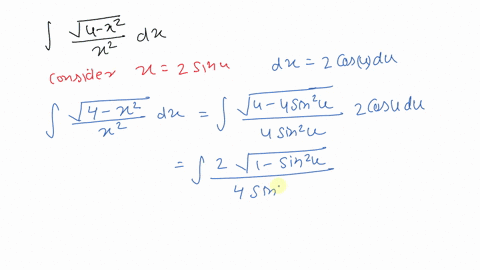 ∫ √(4-x²)/x² dx
consider x = 2 sin u    dx = 2 cos(u) du
∫ √(4-x²)/x² dx = ∫ √(4-4sin²u)/(4 sin²u) 2 cos u du
= ∫ 2 √(1-sin²u)/(4 sin